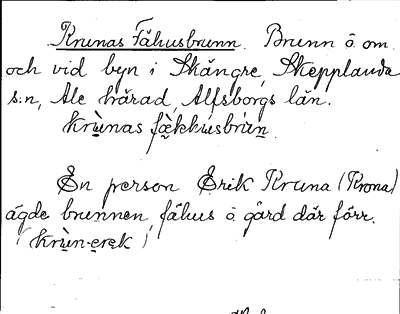 Krunas Fähusbrunn. Brunn ö om
och vid byn i Skångre, Skepplanda
s:n, Ale härad, Älfsborgs län.
krùnas fækkùsbrùn
En person Erik Kruna (Krona)
ägde brunnen, fähus å gård där förr.
(krùn-erek)